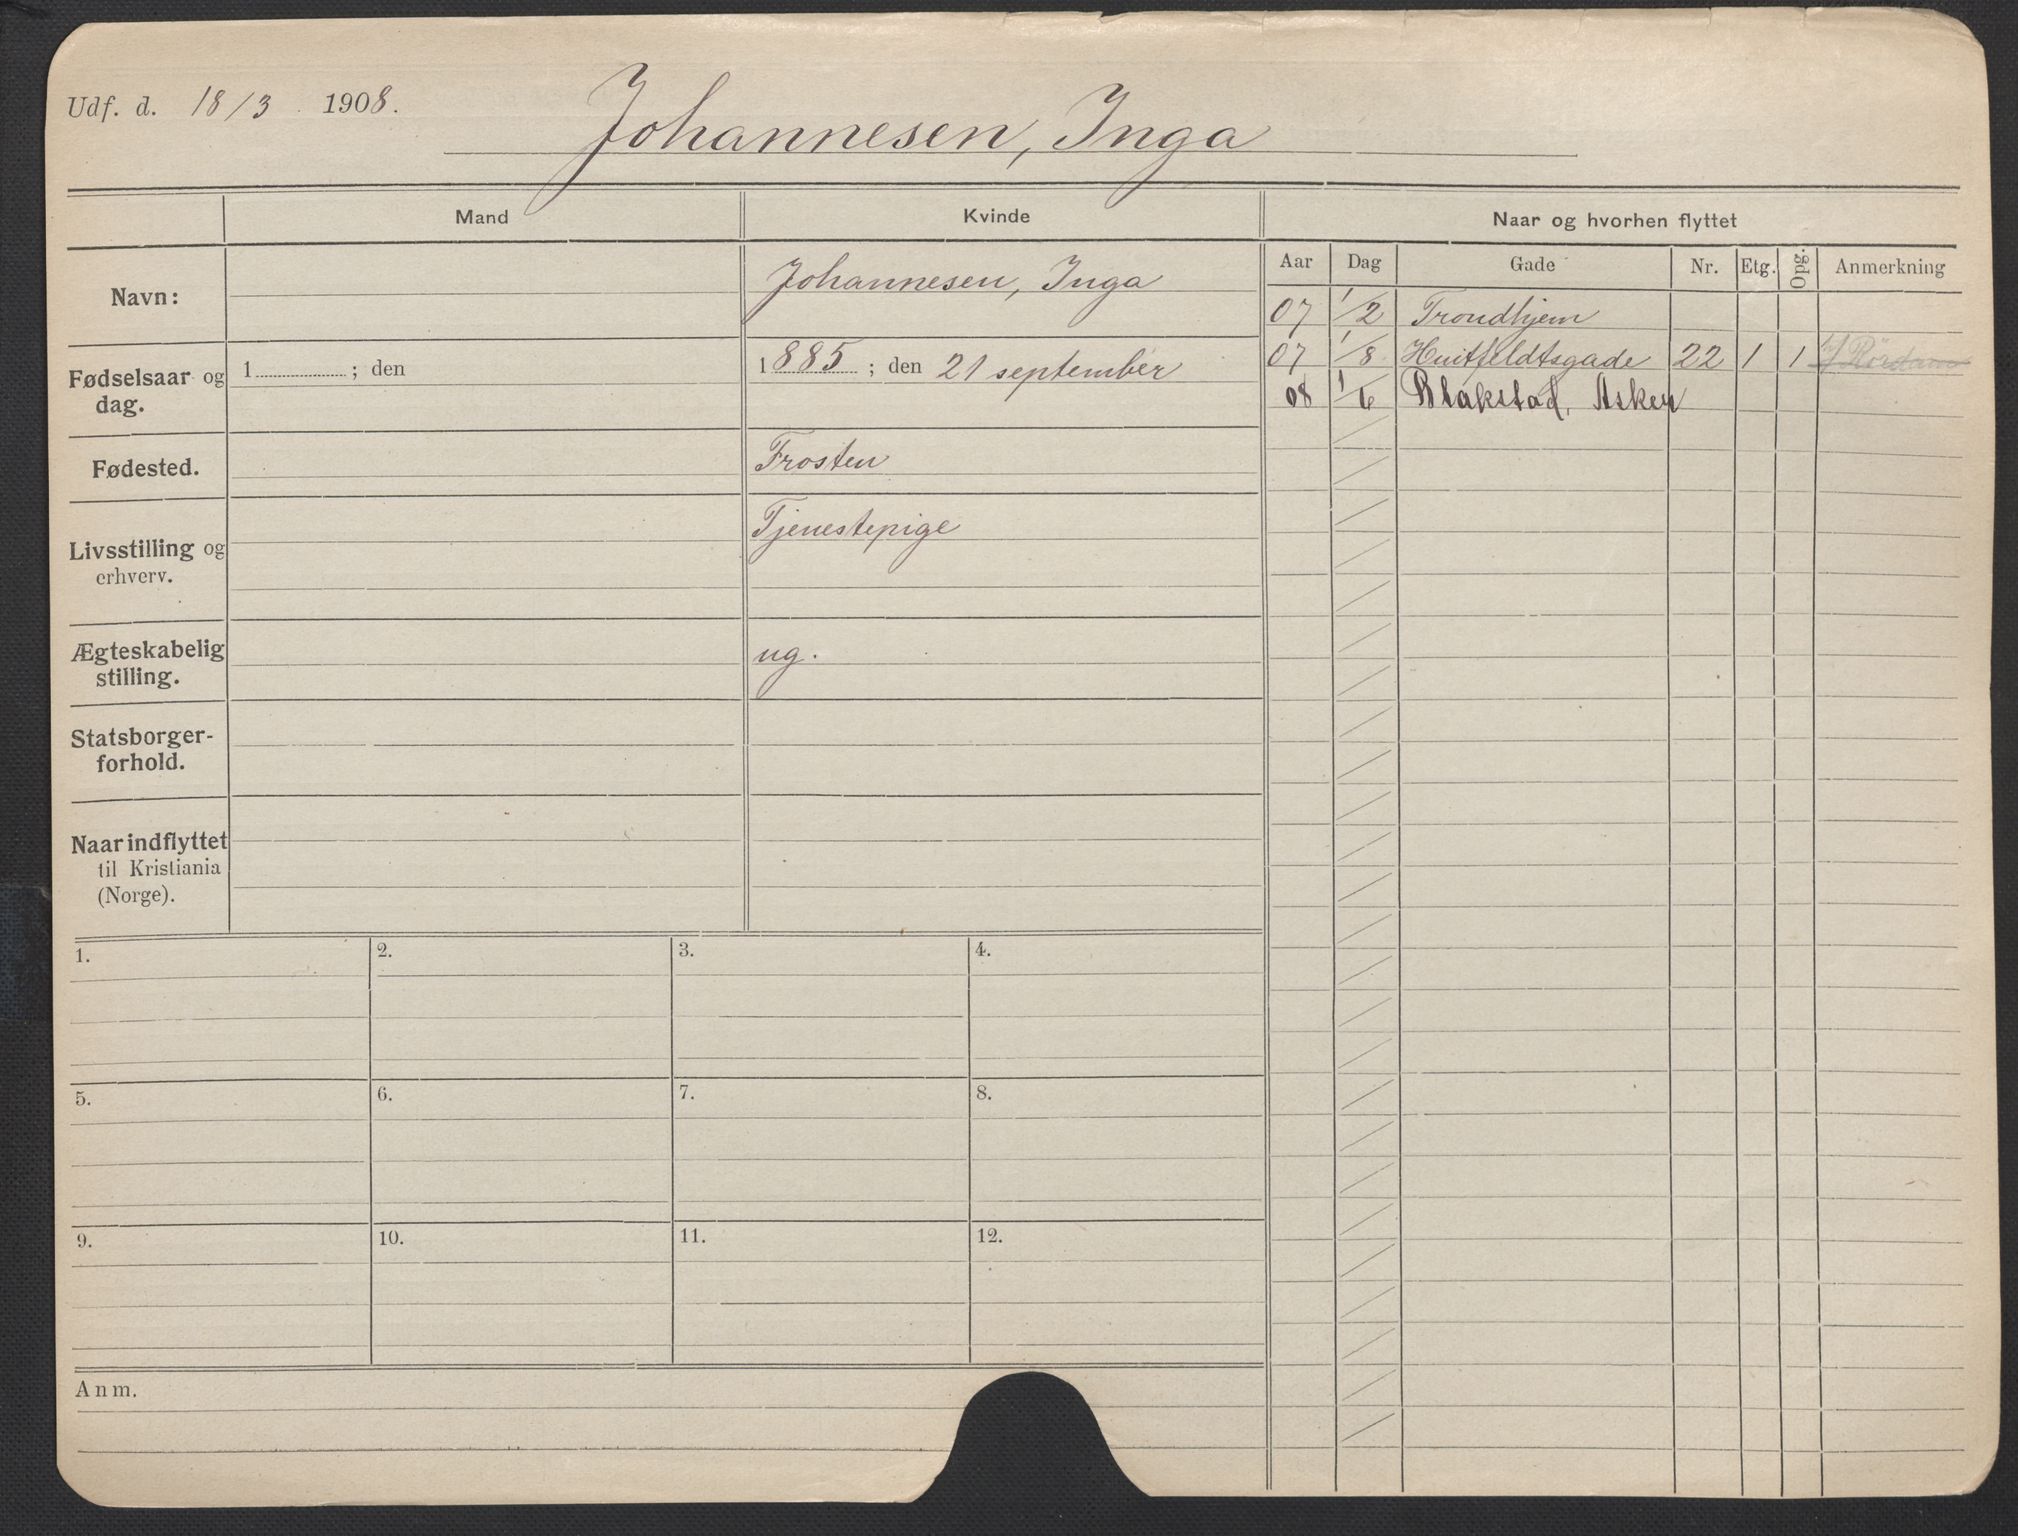 Udf. d. 18/3 1908.
Johannesen, Inga
Mand
Kvinde
Naar og hvorhen flyttet
Aar Dag Gade Nr. Etg. Opg. Anmerkning
Navn:
Johannesen, Inga
07 1/2 Trondhjem
07 1/8 Huitfeldtsgade 22 1 1
08 1/6 Blakstad, Asker
Fødselsaar og
dag.
1 ; den
1885 ; den 21 september
Fødested.
Frosten
Livsstilling og
erhverv.
Tjenestepige
Ægteskabelig
stilling.
ug.
Statsborger-
forhold.
Naar indflyttet
til Kristiania
(Norge).
1. 2. 3. 4.
5. 6. 7. 8.
9. 10. 11. 12.
Anm.